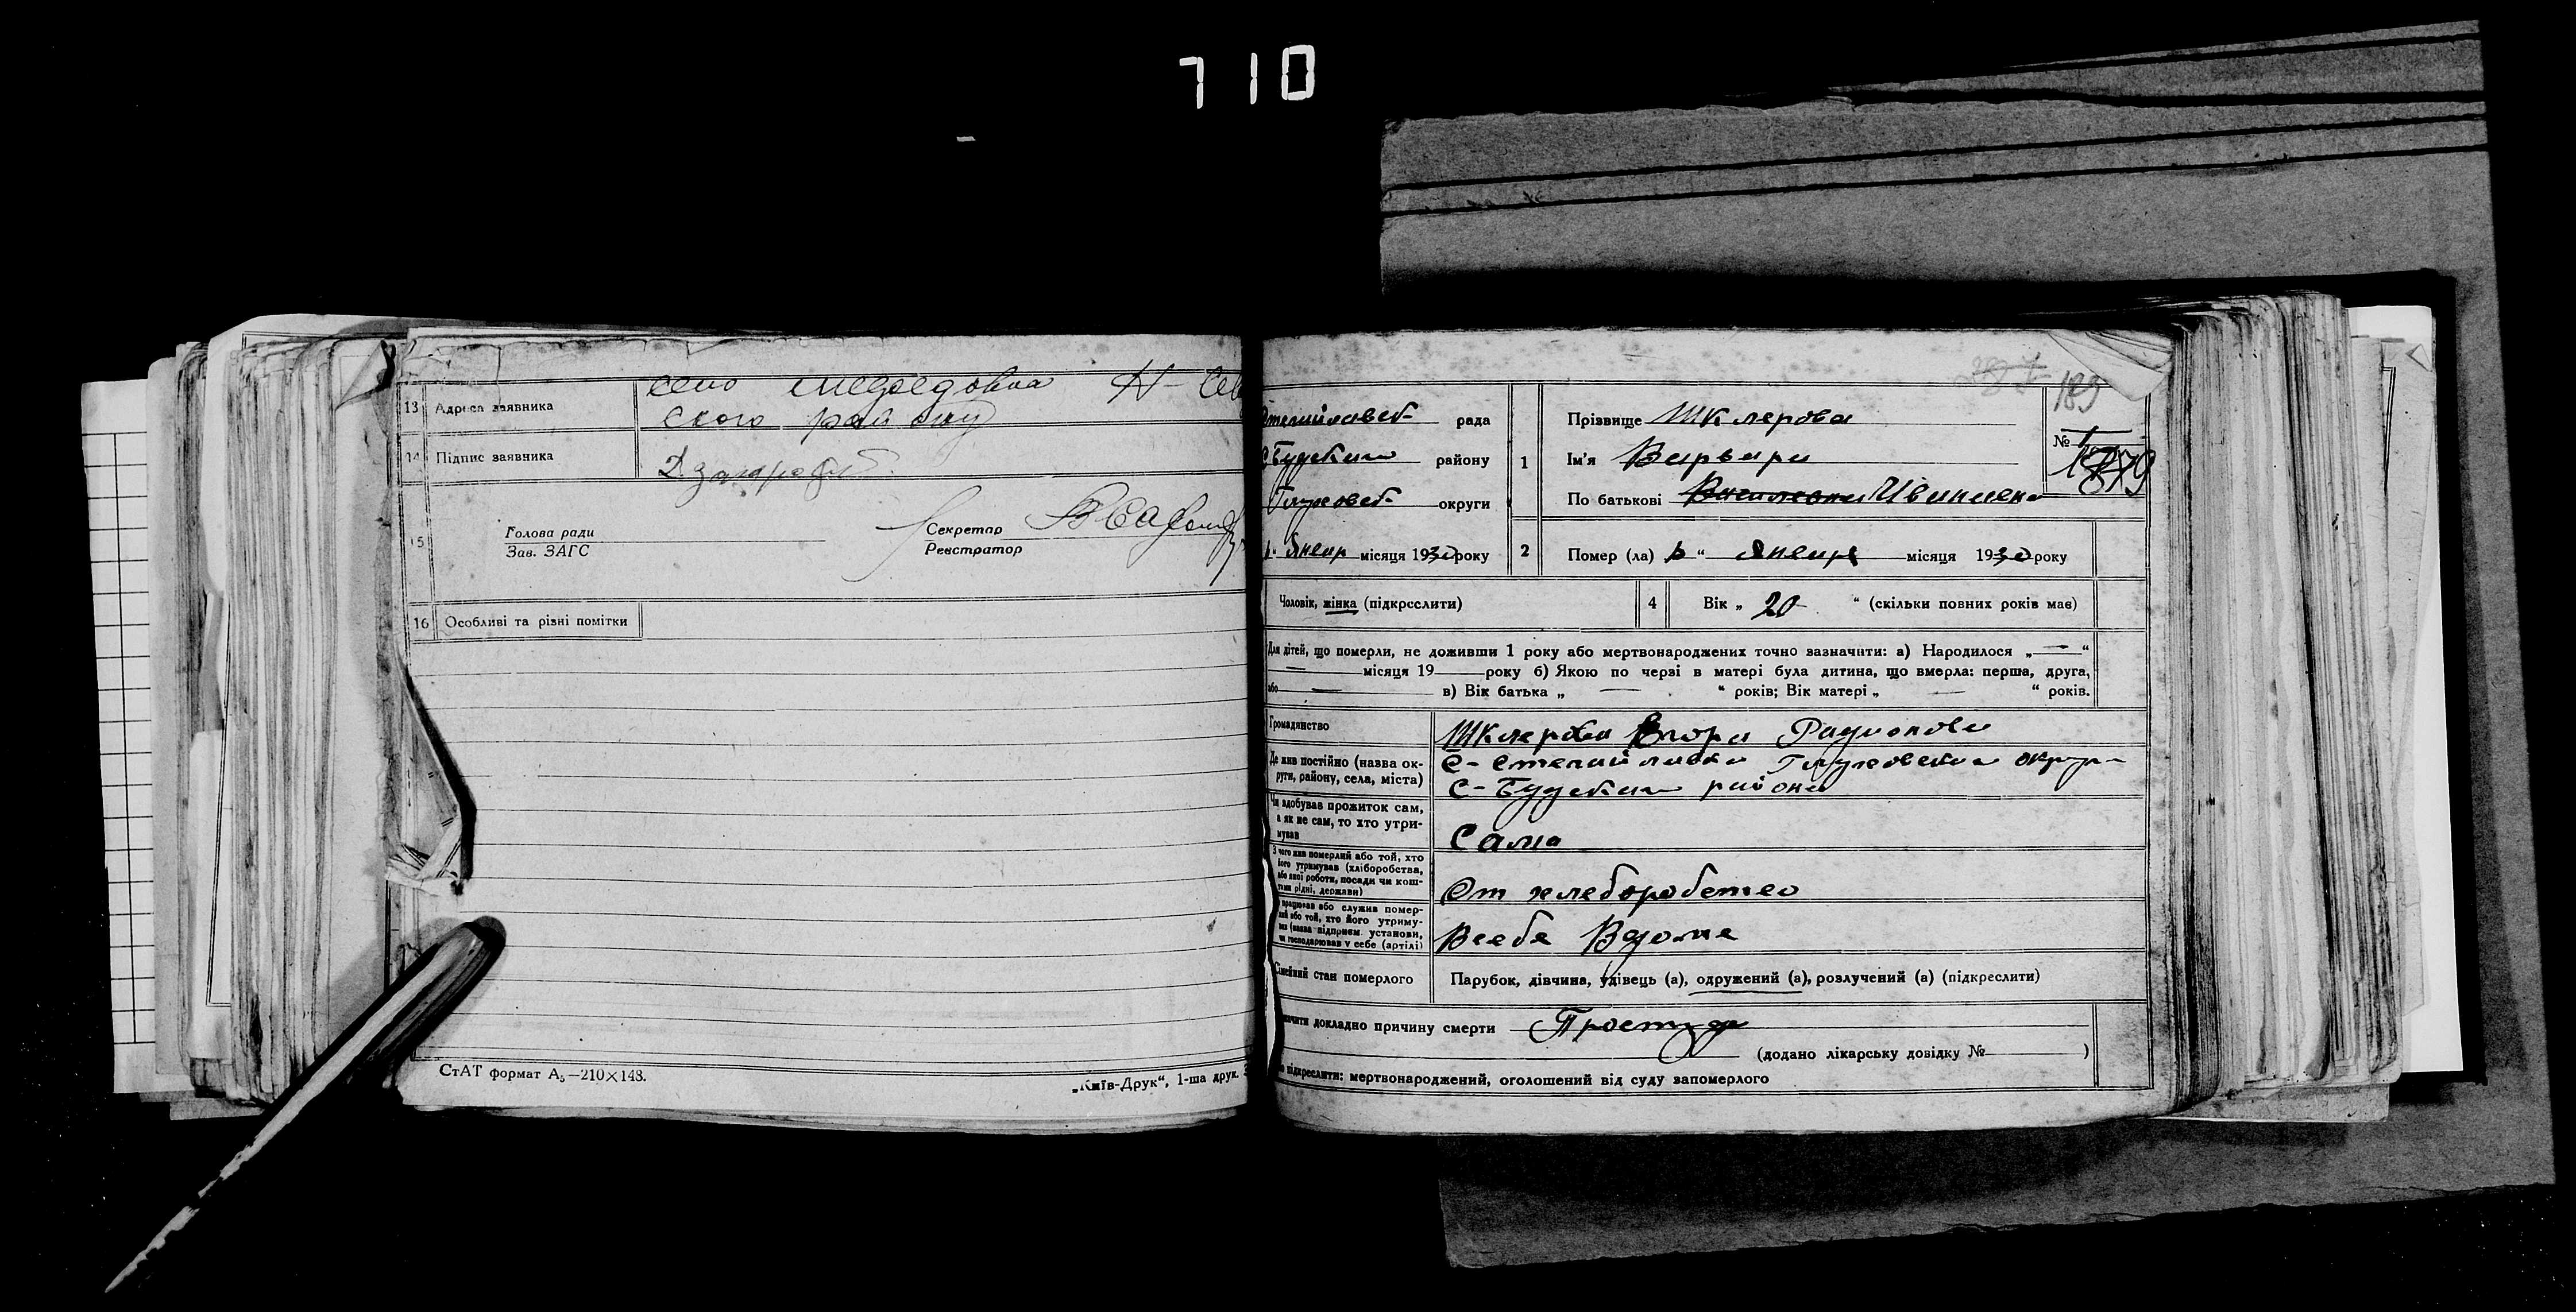 710
13 Адреса заявника село Н-Сев
ского району
14 Підпис заявника
15 Голова ради
Зав. ЗАГС
Секретар
Реєстратор
16 Особливі та різні помітки
СтАТ формат А₅—210×148.
„Київ-Друк“, 1-ша друк.
183
рада
С-Будским району
Глуховск округи
Январ місяця 1930 року
1 Прізвище Шклярова
Ім'я Варвара
По батькові Ивановна
№ 179
2 Помер (ла) “ Января місяця 1930 року
Чоловік, жінка (підкреслити)
4 Вік „ 20 “ (скільки повних років мав)
Для дітей, що померли, не доживши 1 року або мертвонароджених точно зазначити: а) Народилося „—“
— місяця 19 року б) Якою по черзі в матері була дитина, що вмерла: перша, друга,
або — в) Вік батька „ — “ років; Вік матері „ — “ років.
Громадянство Шклярова Егора Радионова
Де жив постійно (назва округи, району, села, міста) С- Глуховской округи
С-Будским района
Чи здобував прожиток сам, а як не сам, то хто утримував Сама
З чого жив померлий або той, хто його утримував (хліборобства, або якої роботи, посади чи коштами рідні, держави) От хлеборобство
працював або служив померлий або той, хто його утримував (назва підприєм. установи, чи господарював у себе (артілі) Всебе Вдоме
Сімейний стан померлого Парубок, дівчина, удівець (а), одружений (а), розлучений (а) (підкреслити)
докладно причину смерти Простуда
(додано лікарську довідку № )
підкреслити: мертвонароджений, оголошений від суду запомерлого